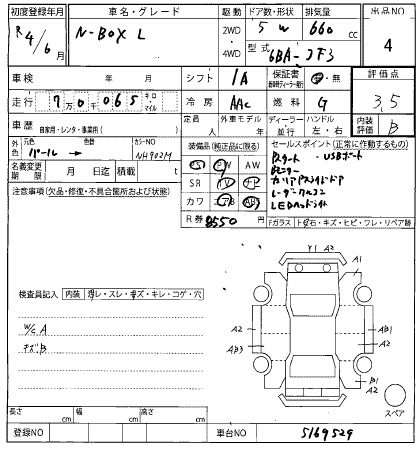 初度登録年月
R4/6月
車名・グレード
N-BOX L
駆動
2WD
・
4WD
ドア数・形状
5W
排気量
660 cc
型式
6BA-JF3
出品NO
4
車検 年 月
シフト
IA
保証書
有・無
評価点
3.5
走行
7万0千065
キロ・マイル
冷房
AAC
燃料
G
車歴
自家用・レンタ・事業用( )
定員
人
外車モデル
年
ディーラー
並行
ハンドル
左・右
内装評価
B
外色
元色
パール
色替
カラーNO
NH902M
装備品(純正品に限る)
セールスポイント(正常に作動するもの)
PS PW AW
SR TV ナビ
カワ エアB ABS
R券 8550
Pスタート ・USBポート
Bモニター
LEDヘッドライト
名義変更期限
月 日迄
積載 t
注意事項(欠品・修復・不具合箇所および状態)
Fガラス
トビ石・キズ・ヒビ・ワレ・リペア跡
検査員記入
内装
スレ・キズ・キレ・コゲ・穴
W/C A
キズ B
Y1 A2
A1
A2
A2
AB1
A2
AB3
B1
A2
スペア
長さ cm
幅 cm
高さ cm
登録NO
車台NO
5169529